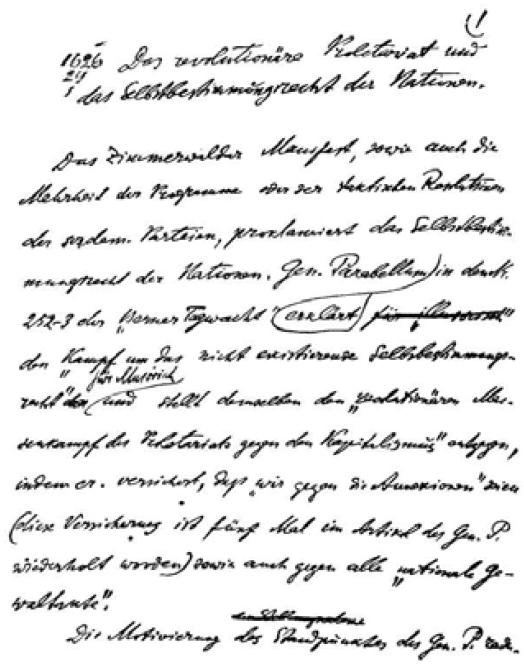 (1
1626
29
1
Das revolutionäre Proletariat und
das Selbstbestimmungsrecht der Nationen.
Das Zimmerwalder Manifest, sowie auch die
Mehrheit der Programme oder der taktischen Resolutionen
der sozdem. Parteien, proklamiert das Selbstbestim-
mungsrecht der Nationen. Gen. Parabellum) in den №№
252-3 der "Berner Tagwacht" erklärt für "illusorisch"
den "Kampf um das nicht existierende Selbstbestimmungs-
für illusorisch
recht" und stellt demselben den "revolutionären Mas-
senkampf des Proletariats gegen den Kapitalismus" entgegen,
indem er versichert, daß "wir gegen die Annexionen" seien
(diese Versicherung ist fünf Mal im Artikel des Gen. P.
wiederholt worden) sowie auch gegen alle "nationale Ge-
waltakte".
Die Motivierung des Standpunktes des Gen. P. redu-